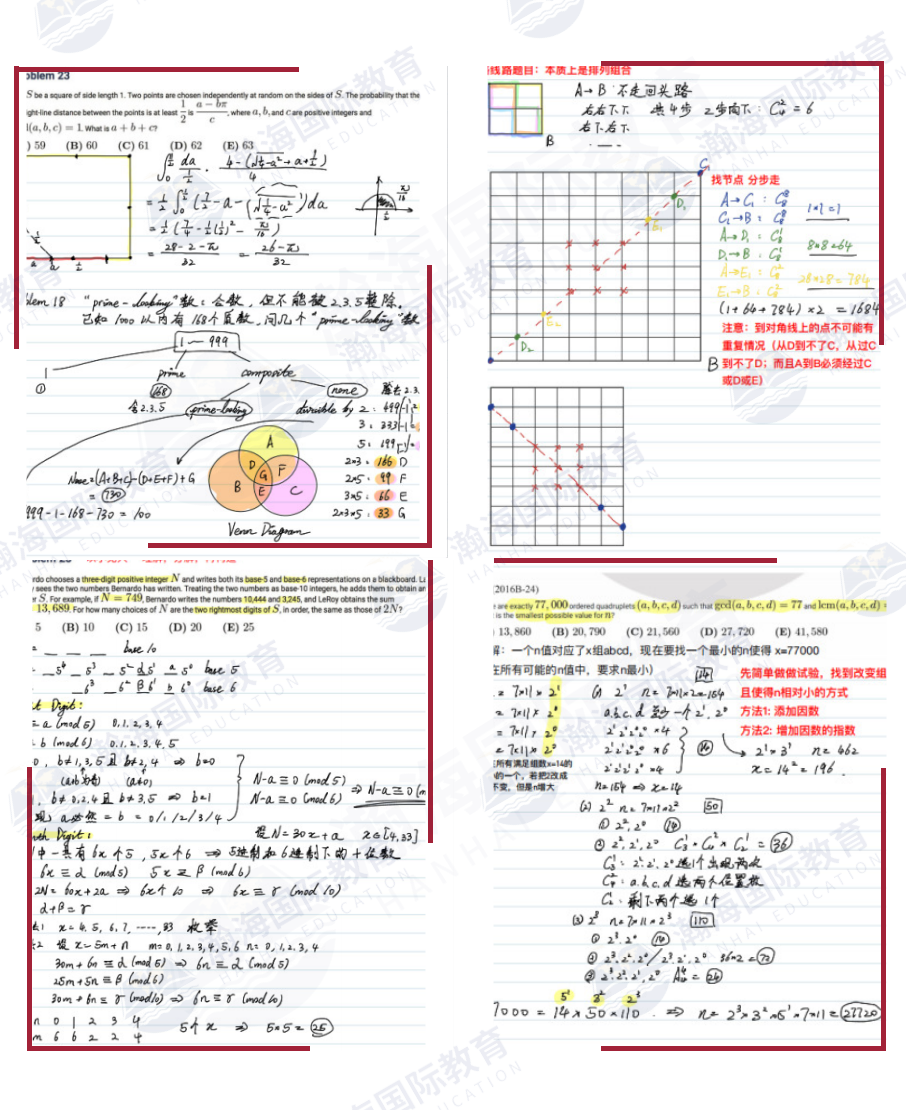 oblem 23
S be a square of side length 1. Two points are chosen independently at random on the sides of S. The probability that the
ight-line distance between the points is at least 1/2 is (a − bπ)/c, where a, b, and c are positive integers and
l(a, b, c) = 1. What is a + b + c?
) 59 (B) 60 (C) 61 (D) 62 (E) 63
= (28-2-π)/32 = (26-π)/32
lem 18 "prime-looking"数:合数,但不能被2.3.5整除.
已知1000以内有168个质数,问几个"prime-looking"数
1 — 999
1 prime composite
① 168 none
含2.3.5 prime-looking divisible by 2: 499-1
3: 333-1
5: 199-1
2×3: 166 D
2×5: 99 F
3×5: 66 E
2×3×5: 33 G
A
D F
G
B E C
None = (A+B+C)-(D+E+F)+G
= 730
999-1-168-730 = 100
Venn Diagram
线路题目:本质上是排列组合
A→B 不走回头路
右右下下 共4步 2步向下: C₄² = 6
右下右下
B
C₁
D₁
E₁
E₂
D₂
B
找节点 分步走
A→C₁ : C₈⁸
C₁→B : C₈⁸ 1*1=1
A→D₁ : C₈¹
D₁→B : C₈¹ 8*8=64
A→E₁ : C₈²
E₁→B : C₈² 28*28=784
(1+64+784)×2 = 1684
注意:到对角线上的点不可能有
重复情况(从D到不了C,从过C
到不了D;而且A到B必须经过C
或D或E)
rdo chooses a three-digit positive integer N and writes both its base-5 and base-6 representations on a blackboard. La
y sees the two numbers Bernardo has written. Treating the two numbers as base-10 integers, he adds them to obtain an
r S. For example, if N = 749, Bernardo writes the numbers 10,444 and 3,245, and LeRoy obtains the sum
13,689. For how many choices of N are the two rightmost digits of S, in order, the same as those of 2N?
5 (B) 10 (C) 15 (D) 20 (E) 25
base 10
5⁴ 5³ 5² α 5¹ a 5⁰ base 5
6³ 6² β 6¹ b 6⁰ base 6
t Digit:
≡ a (mod 5) 0.1.2.3.4
b (mod 6) 0.1.2.3.4.5
0, b≠1,3,5且b≠2,4 ⇒ b=0
, b≠0,2,4且b≠3,5 ⇒ b=1
现 a必然 = b = 0/1/2/3/4
N-a ≡ 0 (mod 5)
N-a ≡ 0 (mod 6) ⇒ N-a ≡ 0 (m
nth Digit: 设N=30x+a x∈[4,33]
中一共有6x个5, 5x个6 ⇒ 5进制和6进制下的十位数
6x ≡ α (mod 5) 5x ≡ β (mod 6)
2N = 60x+2a ⇒ 6x个10 ⇒ 6x ≡ γ (mod 10)
α+β = γ
1 x=4.5,6.7,-----,33 枚举
2 设x=5m+n m=0,1,2,3,4,5,6 n=0,1,2,3,4
30m+6n ≡ α (mod 5) ⇒ 6n ≡ α (mod 5)
25m+5n ≡ β (mod 6)
30m+6n ≡ γ (mod 10) ⇒ 6n ≡ γ (mod 10)
n 0 1 2 3 4
m 6 6 2 2 4
5个x ⇒ 5*5 = 25
(2016B-24)
are exactly 77,000 ordered quadruplets (a, b, c, d) such that gcd(a, b, c, d) = 77 and lcm(a, b, c, d) =
is the smallest possible value for n?
13,860 (B) 20,790 (C) 21,560 (D) 27,720 (E) 41,580
解:一个n值对应了x组abcd,现在要找一个最小的n使得 x=77000
在所有可能的n值中,要求n最小)
先简单做做试验,找到改变组
且使得n相对小的方式
方法1: 添加因数
方法2: 增加因数的指数
= 7×11×2¹
= 7×11×2⁰
= 7×11×2⁰
= 7×11×2⁰
所有满足组数x=14的
的一个,若把2改成
不变,但是n增大
(1) 2¹ n=7×11×2=154 14
a.b.c.d 至少一个2¹, 2⁰
2¹ 2⁰ 2⁰ 2⁰ ×4
2¹ 2¹ 2⁰ 2⁰ ×6 14
2¹ 2¹ 2¹ 2⁰ ×4
2¹×3¹ n=462
x=14²=196.
n=154 ⇒ x=14
(2) 2² n=7×11×2² 50
① 2², 2⁰ 14
② 2², 2¹, 2⁰ C₃¹×C₄²×C₂¹ = 36
C₃¹: 2², 2¹, 2⁰ 选1个出现两次
C₄²: a.b.c.d 选两个位置放
C₂¹: 剩下两个选1个
(3) 2³ n=7×11×2³ 110
① 2³.2⁰ 14
② 2³.2².2⁰/2³.2¹.2⁰ 36×2=72
③ 2³.2².2¹.2⁰ A₄⁴=24
5¹ 3² 2³
7000 = 14×50×110. ⇒ n=2³×3²×5¹×7×11=27720
瀚海国际教育
HANHAI EDUCATION